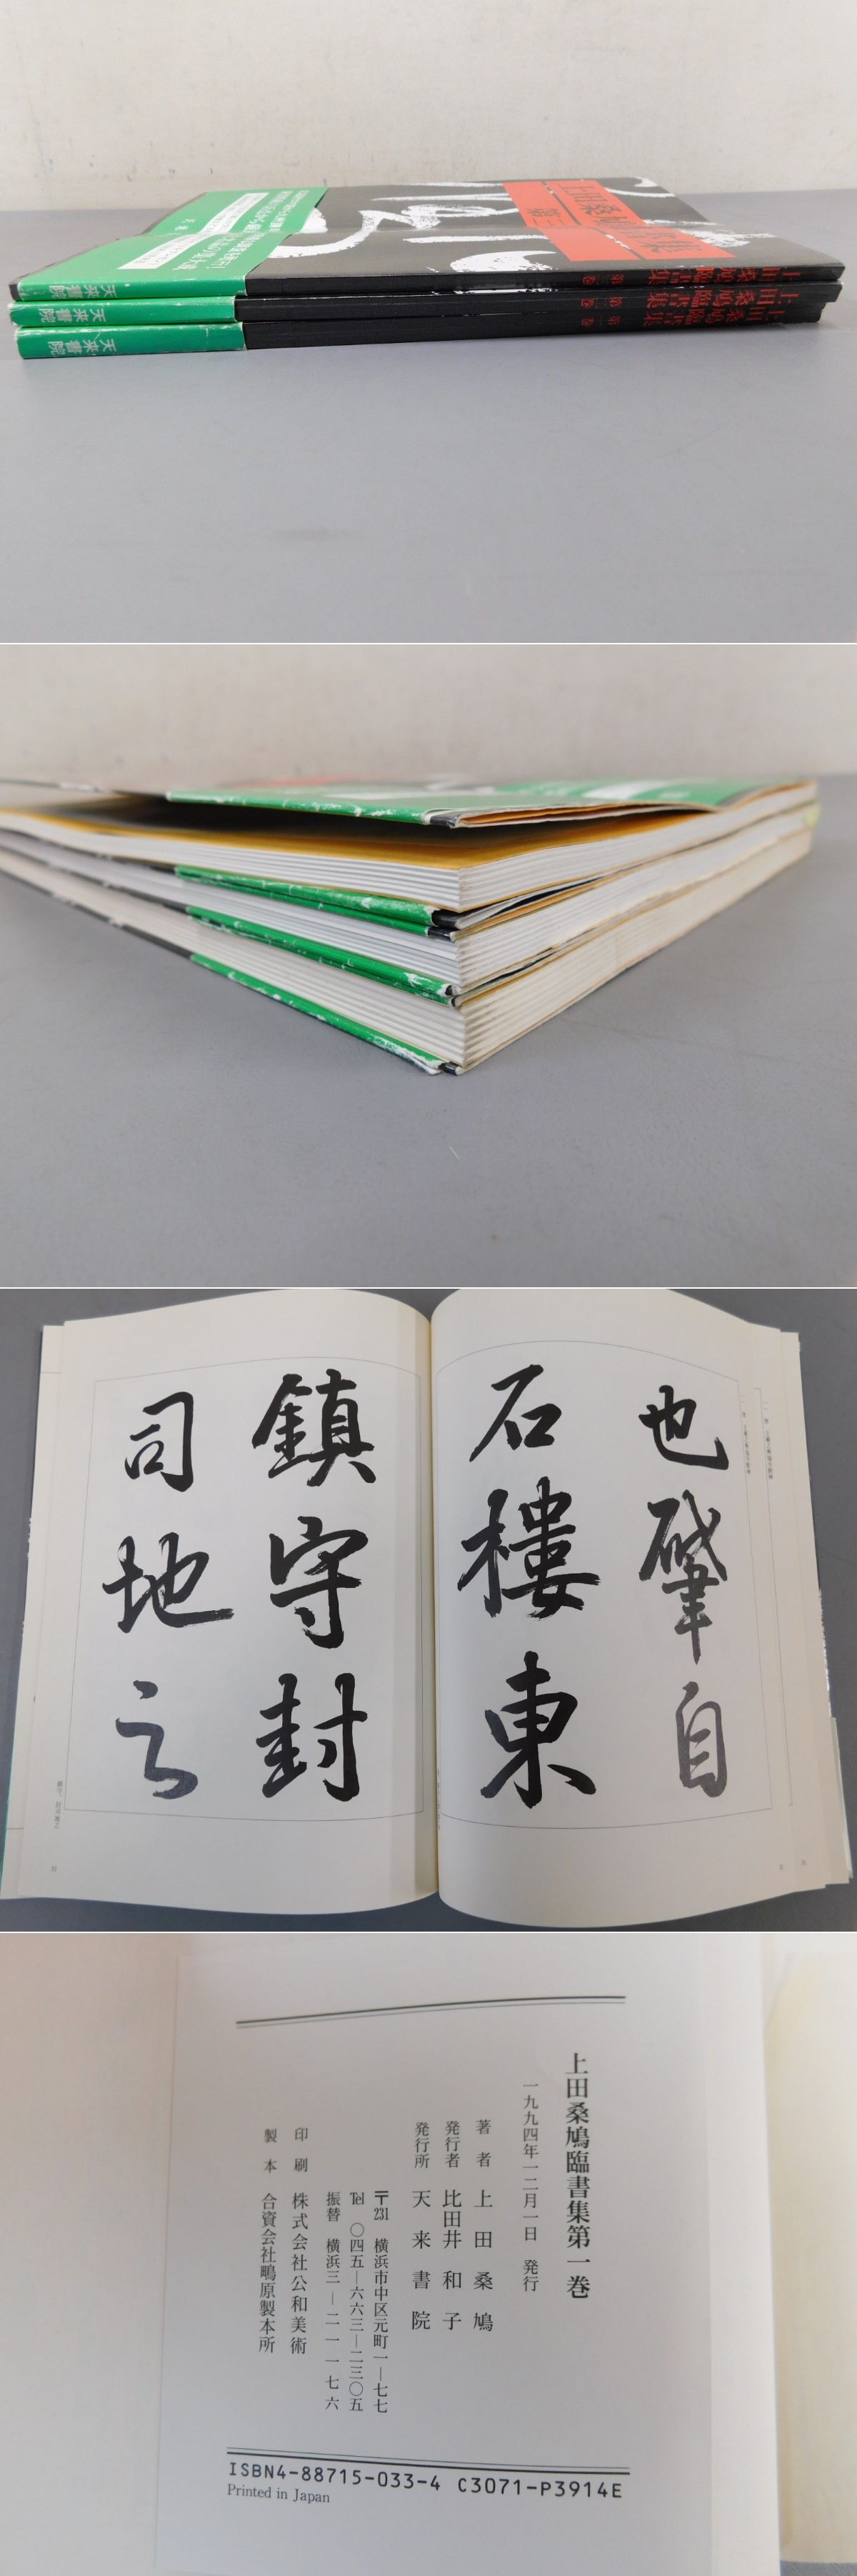 上田桑鳩臨書集
第三
天来書院
上田桑鳩臨書集 第三巻
天来書院
上田桑鳩臨書集 第二巻
天来書院
上田桑鳩臨書集 第一巻
天来書院
也肇自
石樓東
鎮守封
司地之
鎮守、封司地之
上田桑鳩臨書集第一巻
一九九四年一二月一日 発行
著者 上田桑鳩
発行者 比田井和子
発行所 天来書院
〒231 横浜市中区元町一―七七
Tel 〇四五―六六三―二三〇五
振替 横浜三―二一一七六
印刷 株式会社公和美術
製本 合資会社鴫原製本所
ISBN4-88715-033-4 C3071-P3914E
Printed in Japan